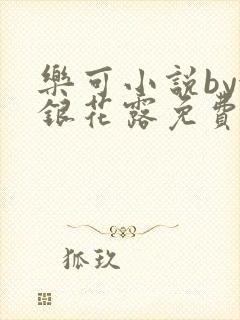 樂可小說by
銀花露免費
狐玖